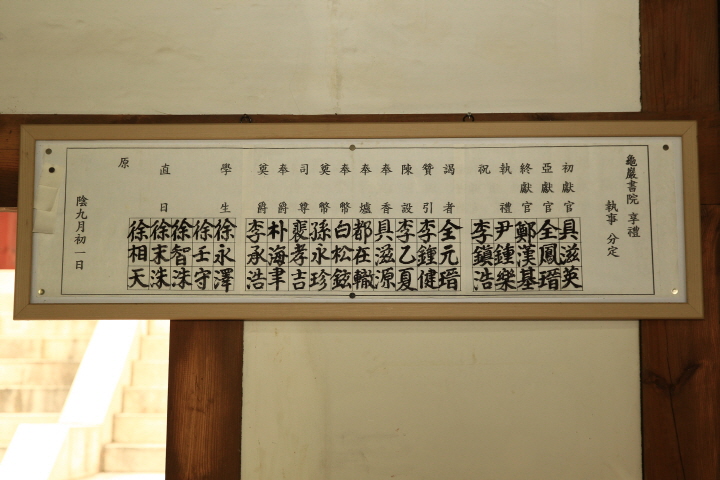 龜巖書院 享禮
執事 分定
初獻官 具滋英
亞獻官 全鳳瑨
終獻官 鄭漢基
執禮 尹鍾樂
祝 李鎭浩
謁者 全元瑨
贊引 李鍾健
陳設 李乙夏
奉香 具滋源
奉爐 都在轍
奉幣 白松鉉
奠幣 孫永珍
司尊 裵孝吉
奉爵 朴海聿
奠爵 李承浩
學生 徐永澤
徐壬守
徐智洙
直日 徐末洙
徐相天
原
陰九月初一日